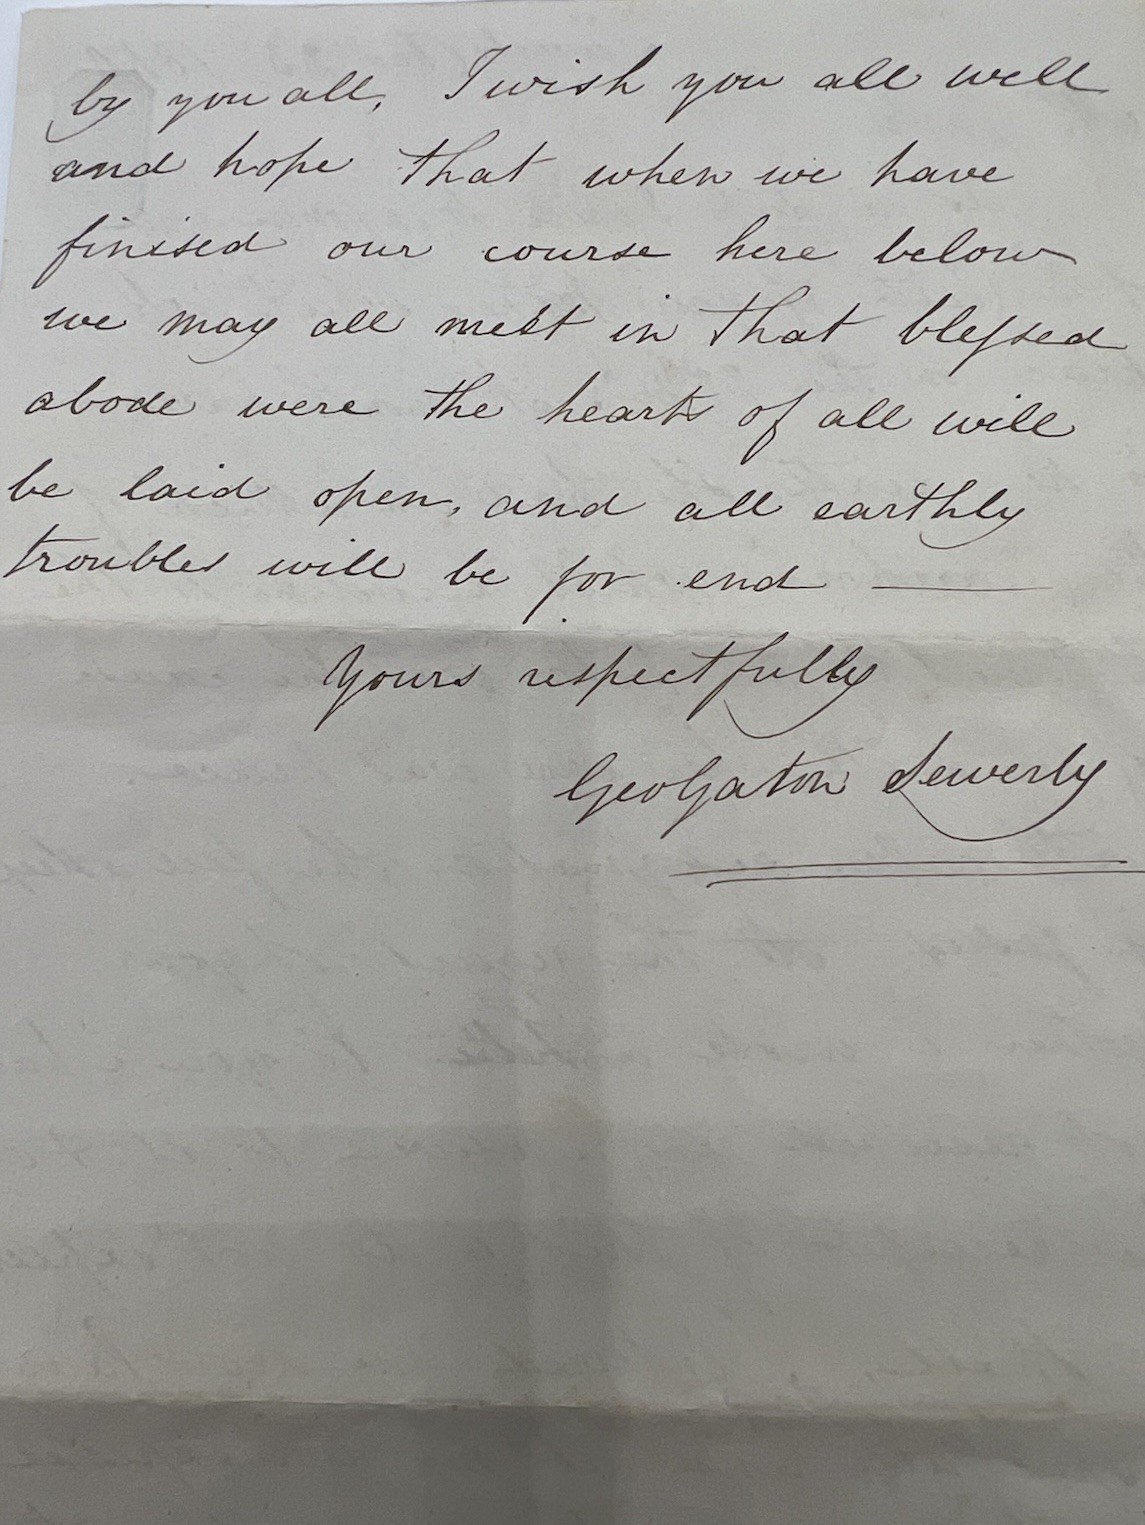 by you all. I wish you all well
and hope that when we have
finised our course here below
we may all meet in that blessed
abode were the hearts of all will
be laid open, and all earthly
troubles will be for end —
Yours respectfully
Geo Gaton Lewerly